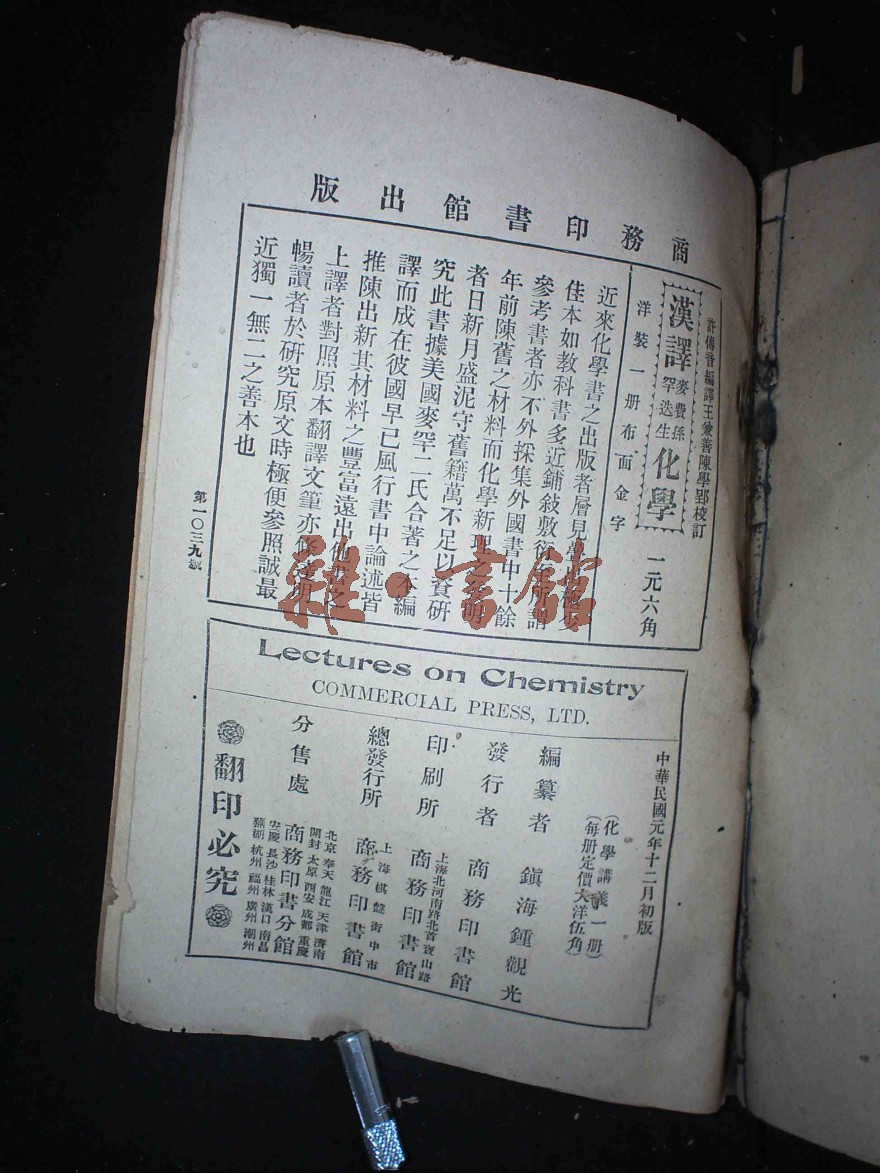 商務印書館出版
許傳音編譯王兼善陳學郢校訂
漢譯麥費孫罕迭生化學
一元六角
洋裝一册布面金字
近來化學書之出版者層見
佳本如教科書多近鋪敍敷衍
參考書者亦不外採集外國書中十餘
年前陳舊之材料而化學新理之
者日新月盛泥守舊籍萬不足以資研
究此書據美國麥罕二氏合著之本編
譯而成在彼國早已風行書中論述皆
推陳出新其材料之豐富遠出他書之
上譯者對照原本翻譯文筆亦
暢讀者於研究原文時極便參照誠最
近獨一無二之善本也
第一〇三九號
Lectures on Chemistry
COMMERCIAL PRESS, LTD.
中華民國元年十二月初版
(化學講義一册)
(每册定價大洋伍角)
編纂者 鎭海鍾觀光
發行者 商務印書館
上海北河南路北首寶山路
印刷所 商務印書館
上海棋盤街中市
總發行所 商務印書館
北京 奉天 龍江 天津 濟南
開封 太原 西安 成都 重慶
分售處 商務印書分館
安慶 長沙 桂林 漢口 南昌
蕪湖 杭州 福州 廣州 潮州
翻印必究
雜·書館